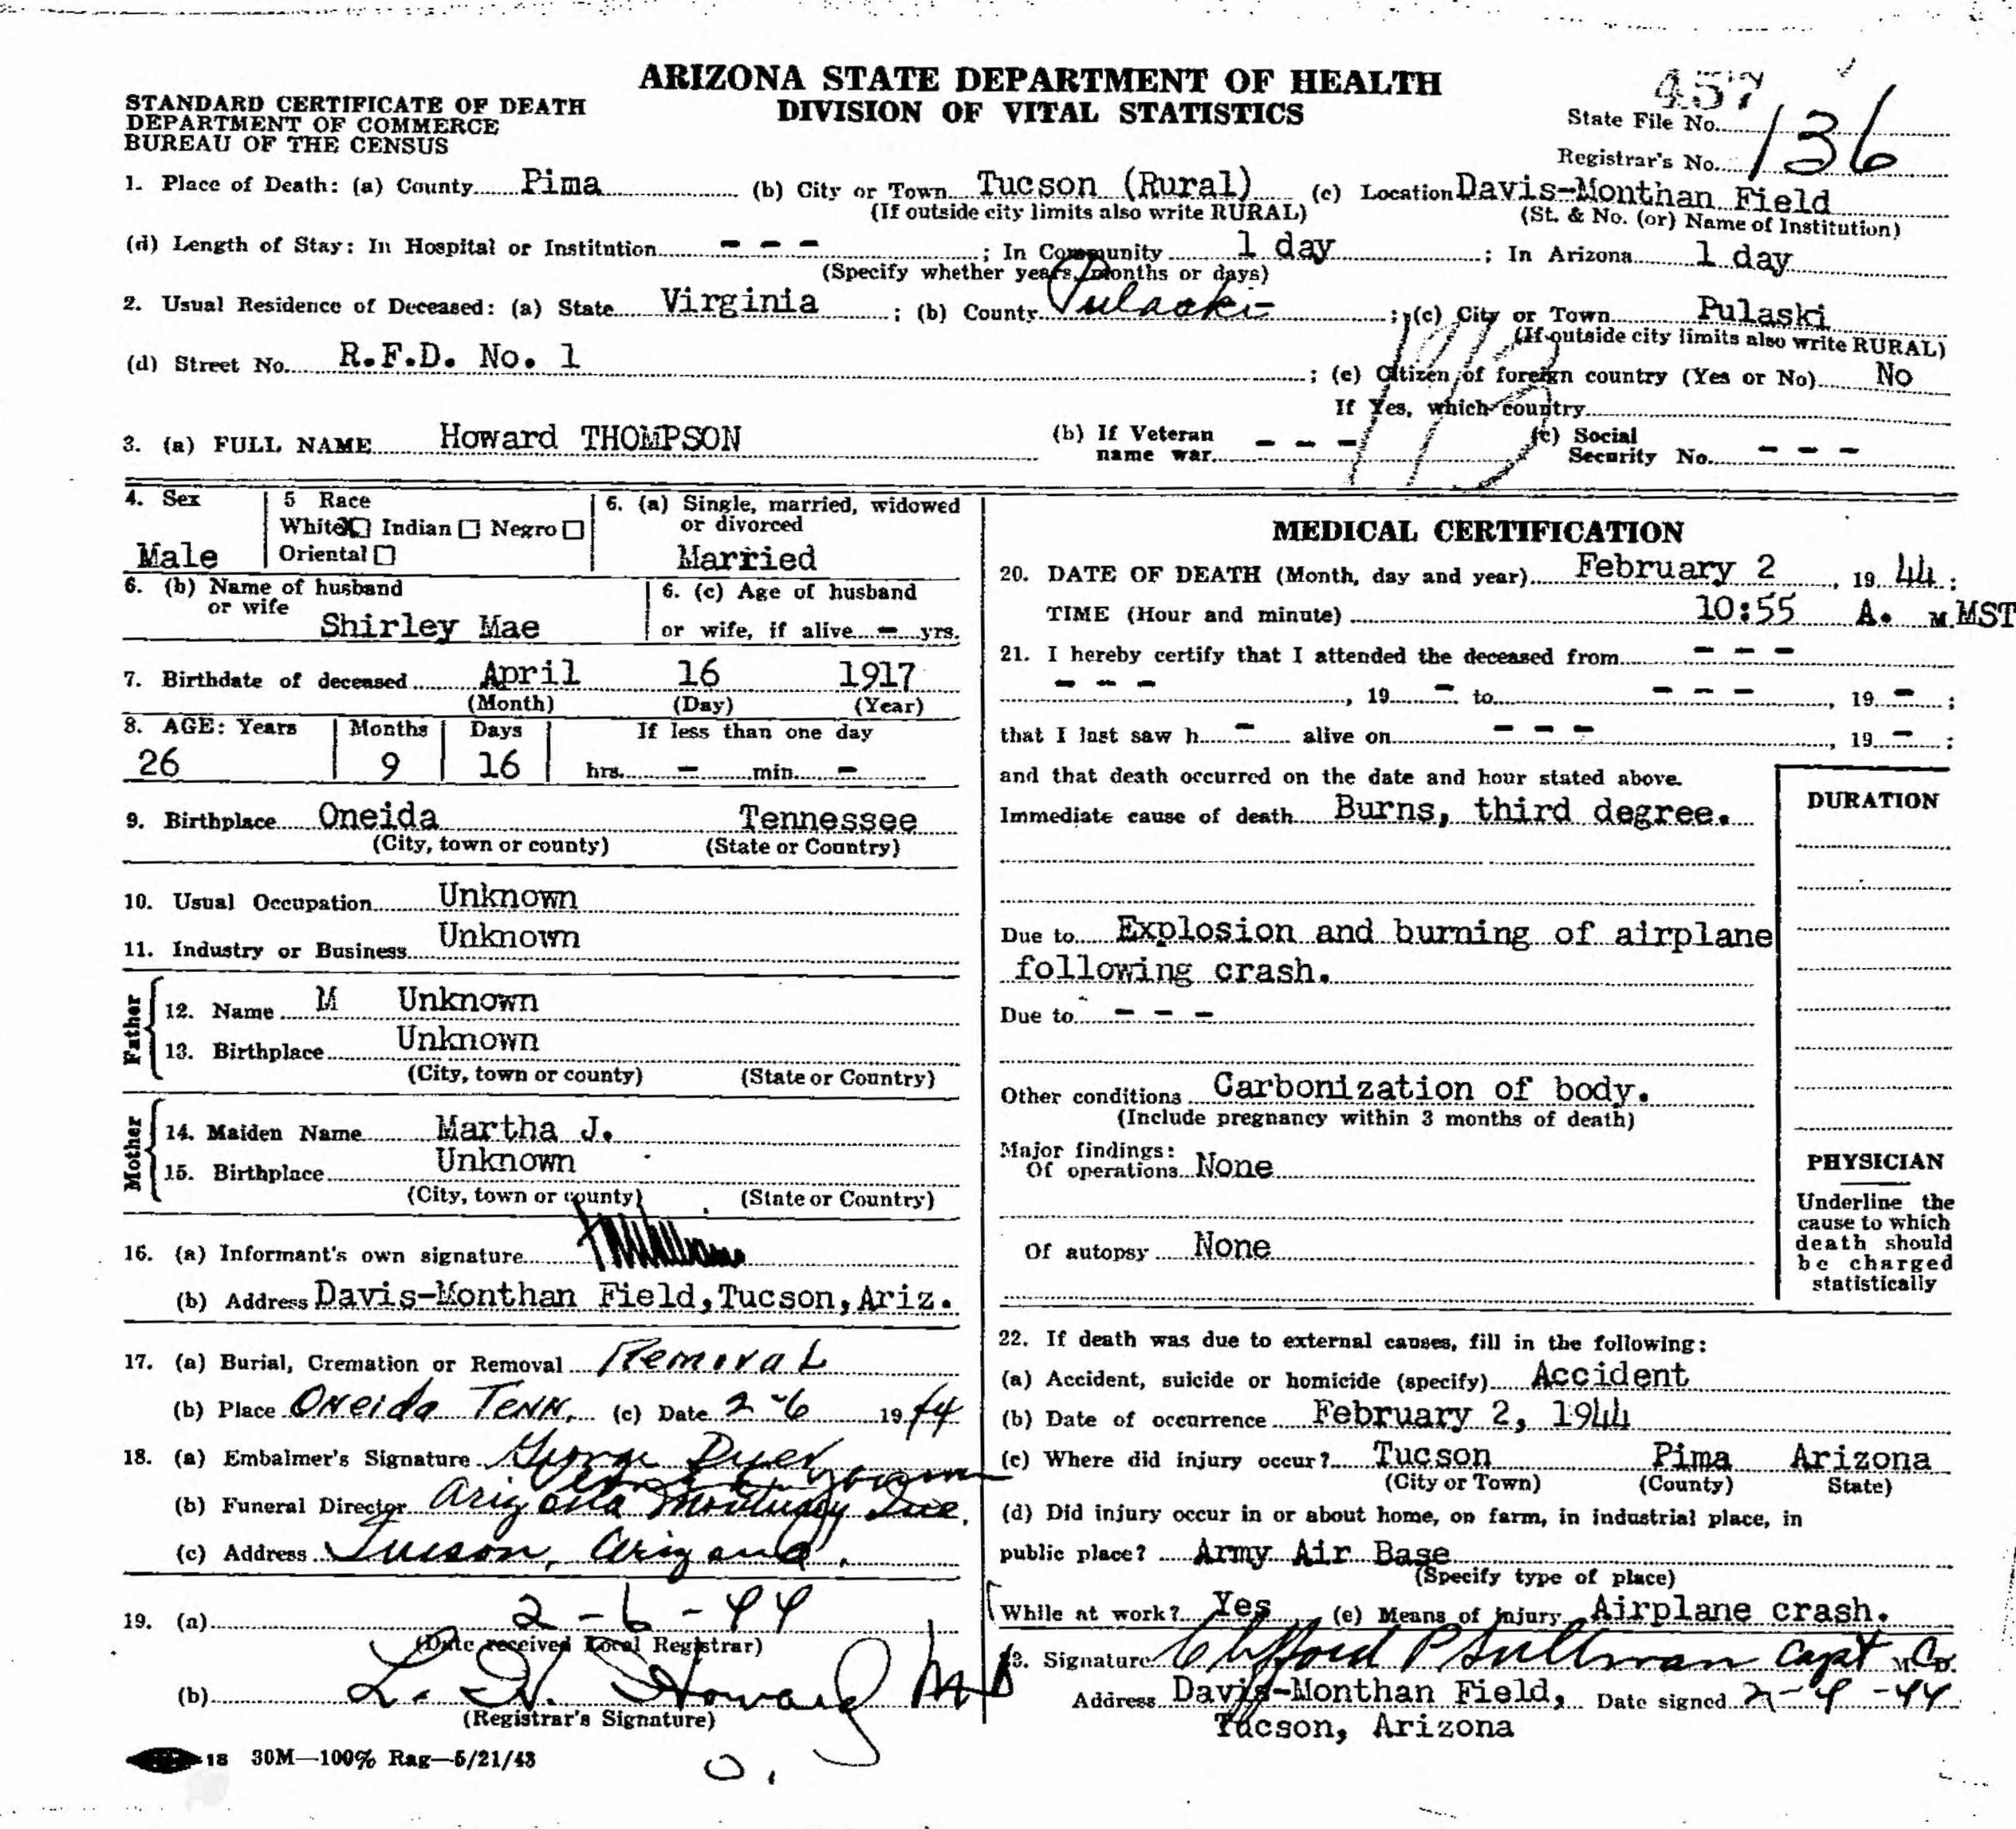 ARIZONA STATE DEPARTMENT OF HEALTH
DIVISION OF VITAL STATISTICS
STANDARD CERTIFICATE OF DEATH
DEPARTMENT OF COMMERCE
BUREAU OF THE CENSUS
457
State File No.
Registrar's No. 136
1. Place of Death: (a) County Pima (b) City or Town Tucson (Rural) (c) Location Davis-Monthan Field
(If outside city limits also write RURAL) (St. & No. (or) Name of Institution)
(d) Length of Stay: In Hospital or Institution - - - ; In Community 1 day ; In Arizona 1 day
(Specify whether years, months or days)
2. Usual Residence of Deceased: (a) State Virginia ; (b) County Pulaski ; (c) City or Town Pulaski
(If outside city limits also write RURAL)
(d) Street No. R.F.D. No. 1 ; (e) Citizen of foreign country (Yes or No) No
If Yes, which country
3. (a) FULL NAME Howard THOMPSON (b) If Veteran name war - - - (c) Social Security No. - - -
4. Sex Male
5 Race
White X Indian Negro
Oriental
6. (a) Single, married, widowed
or divorced
Married
6. (b) Name of husband
or wife Shirley Mae
6. (c) Age of husband
or wife, if alive - yrs.
7. Birthdate of deceased April 16 1917
(Month) (Day) (Year)
8. AGE: Years Months Days If less than one day
26 9 16 hrs. - min. -
9. Birthplace Oneida Tennessee
(City, town or county) (State or Country)
10. Usual Occupation Unknown
11. Industry or Business Unknown
Father
12. Name M Unknown
13. Birthplace Unknown
(City, town or county) (State or Country)
Mother
14. Maiden Name Martha J.
15. Birthplace Unknown
(City, town or county) (State or Country)
16. (a) Informant's own signature
(b) Address Davis-Monthan Field, Tucson, Ariz.
17. (a) Burial, Cremation or Removal Removal
(b) Place Oneida Tenn. (c) Date 2-6 1944
18. (a) Embalmer's Signature George Dyer
(b) Funeral Director Arizona Mortuary Inc.
(c) Address Tucson, Arizona.
19. (a) 2-6-44
(Date received Local Registrar)
(b) L. H. Howard MD
(Registrar's Signature)
18 30M—100% Rag—5/21/43
MEDICAL CERTIFICATION
20. DATE OF DEATH (Month, day and year) February 2, 19 44;
TIME (Hour and minute) 10:55 A. M. MST
21. I hereby certify that I attended the deceased from - - -
- - - , 19 - to - - - , 19 - ;
that I last saw h - alive on - - - , 19 - ;
and that death occurred on the date and hour stated above.
Immediate cause of death Burns, third degree.
Due to Explosion and burning of airplane
following crash.
Due to - - -
Other conditions Carbonization of body.
(Include pregnancy within 3 months of death)
Major findings:
Of operations None
Of autopsy None
DURATION
PHYSICIAN
Underline the
cause to which
death should
be charged
statistically
22. If death was due to external causes, fill in the following:
(a) Accident, suicide or homicide (specify) Accident
(b) Date of occurrence February 2, 1944
(c) Where did injury occur? Tucson Pima Arizona
(City or Town) (County) State)
(d) Did injury occur in or about home, on farm, in industrial place, in
public place? Army Air Base
(Specify type of place)
While at work? Yes (e) Means of injury Airplane crash.
23. Signature Clifford P Sullivan Capt M.C. M.D.
Address Davis-Monthan Field, Date signed 2-4-44
Tucson, Arizona